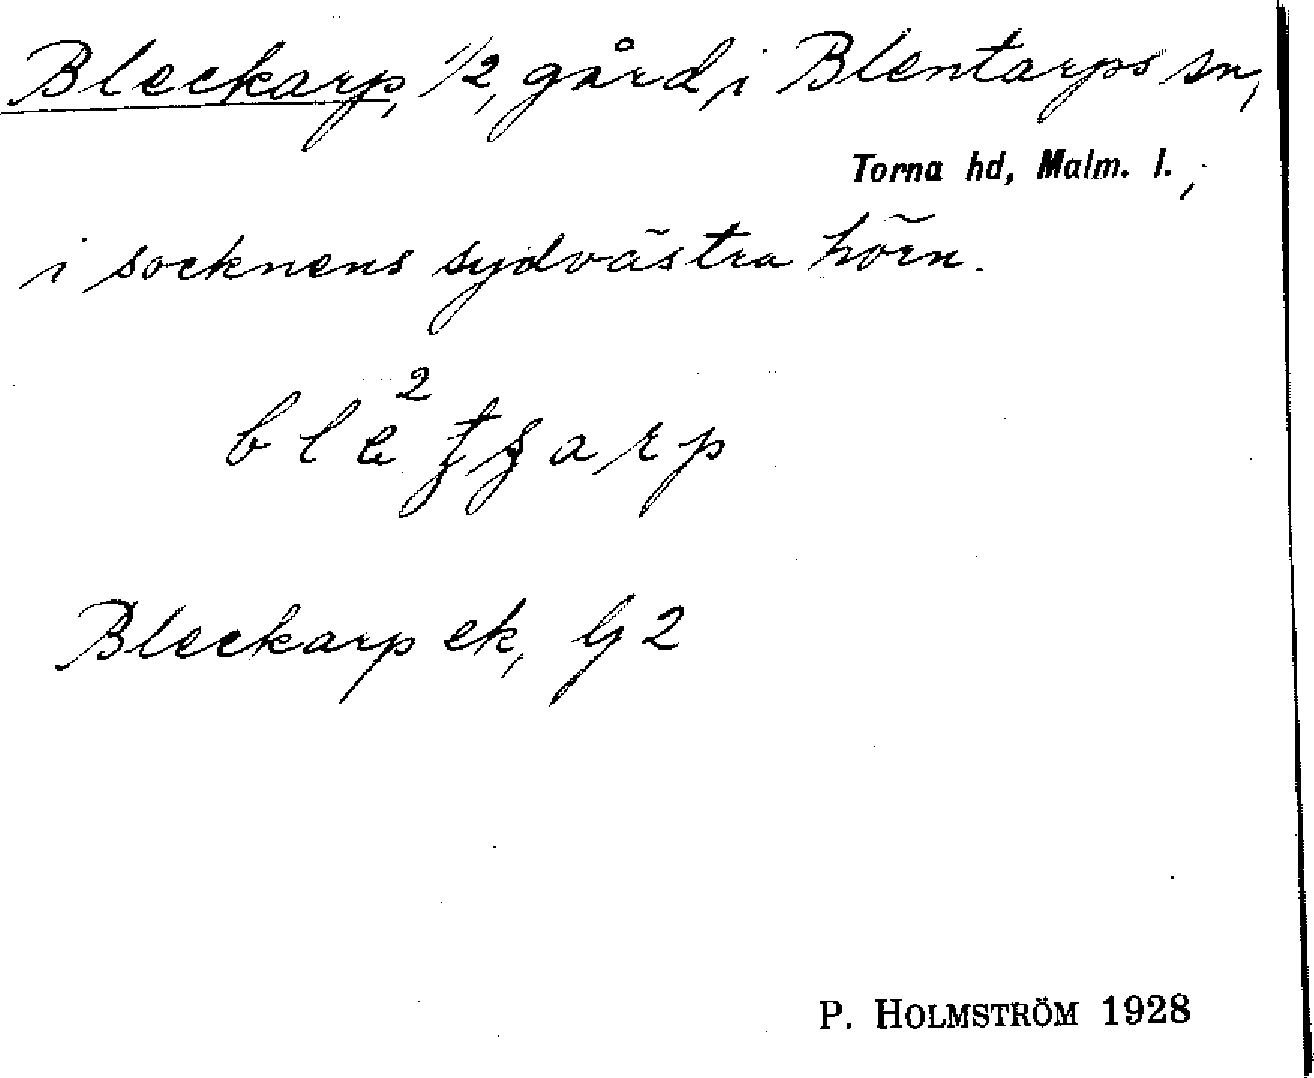 Bleckarp, 1/2, gård, i Blentarps sn,
Torna hd, Malm. l.,
i socknens sydvästra hörn.
Bleckarp ek, G 2
P. HOLMSTRÖM 1928